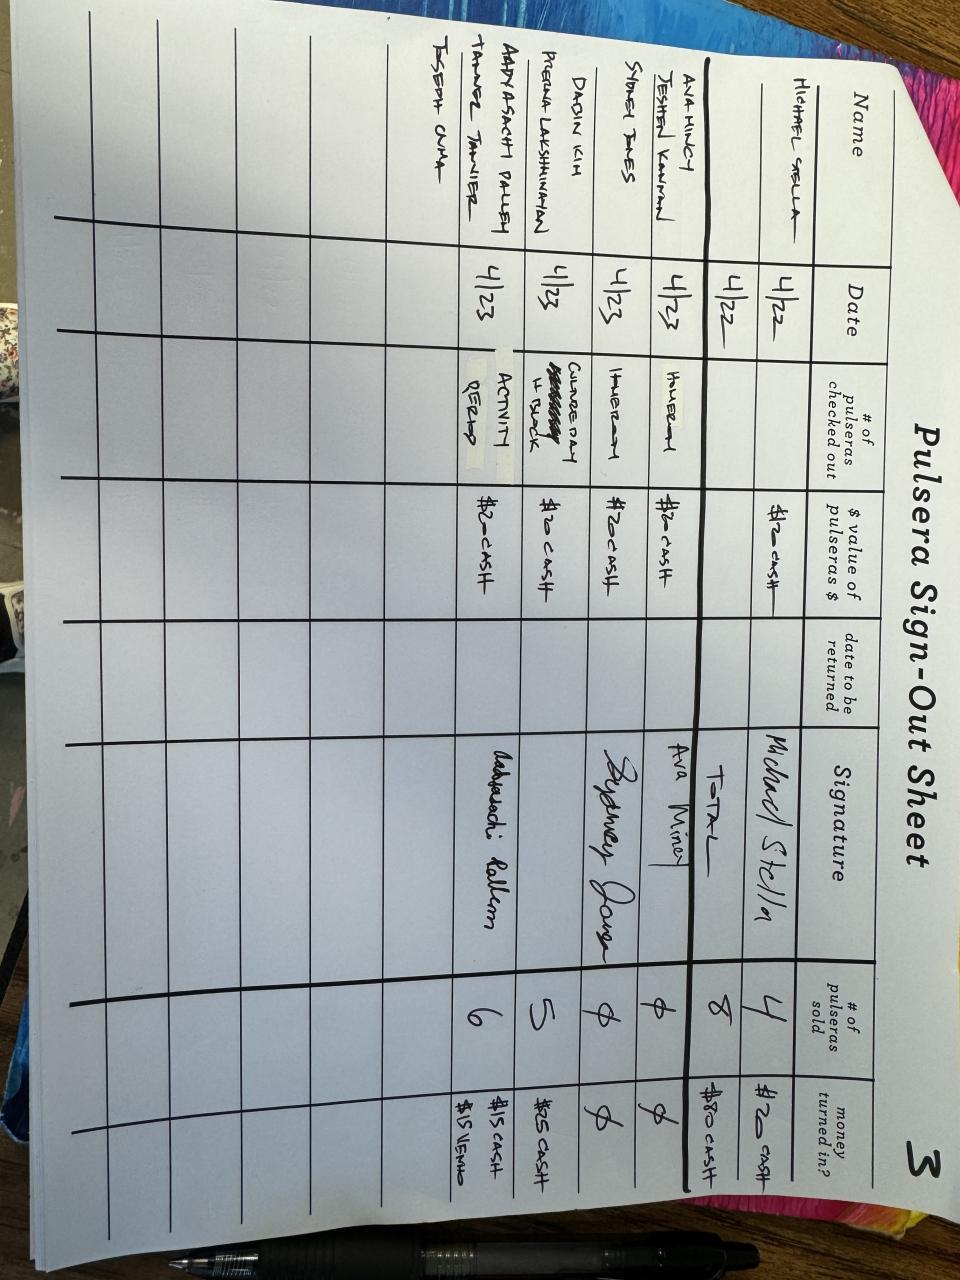 Pulsera Sign-Out Sheet 3
Name Date # of pulseras checked out $ value of pulseras $ date to be returned Signature # of pulseras sold money turned in?
MICHAEL STELLA 4/22 $20 CASH Michael Stella 4 $20 CASH
4/22 TOTAL 8 $80 CASH
AVA MINCY
JESHEN KANNAN 4/23 HOMEROOM $20 CASH Ava Mincy ∅ ∅
SYDNEY JONES 4/23 HOMEROOM $20 CASH Sydney Jones ∅ ∅
DABIN KIM
PRERNA LAKSHMINAYAN 4/23 CULTURE DAY
H BLOCK $20 CASH 5 $25 CASH
AADYASACHI PALLEM
TANNER TANNIER 4/23 ACTIVITY
PERIOD $20 CASH Aadyasachi Pallem 6 $15 CASH
$15 VENMO
JOSEPH